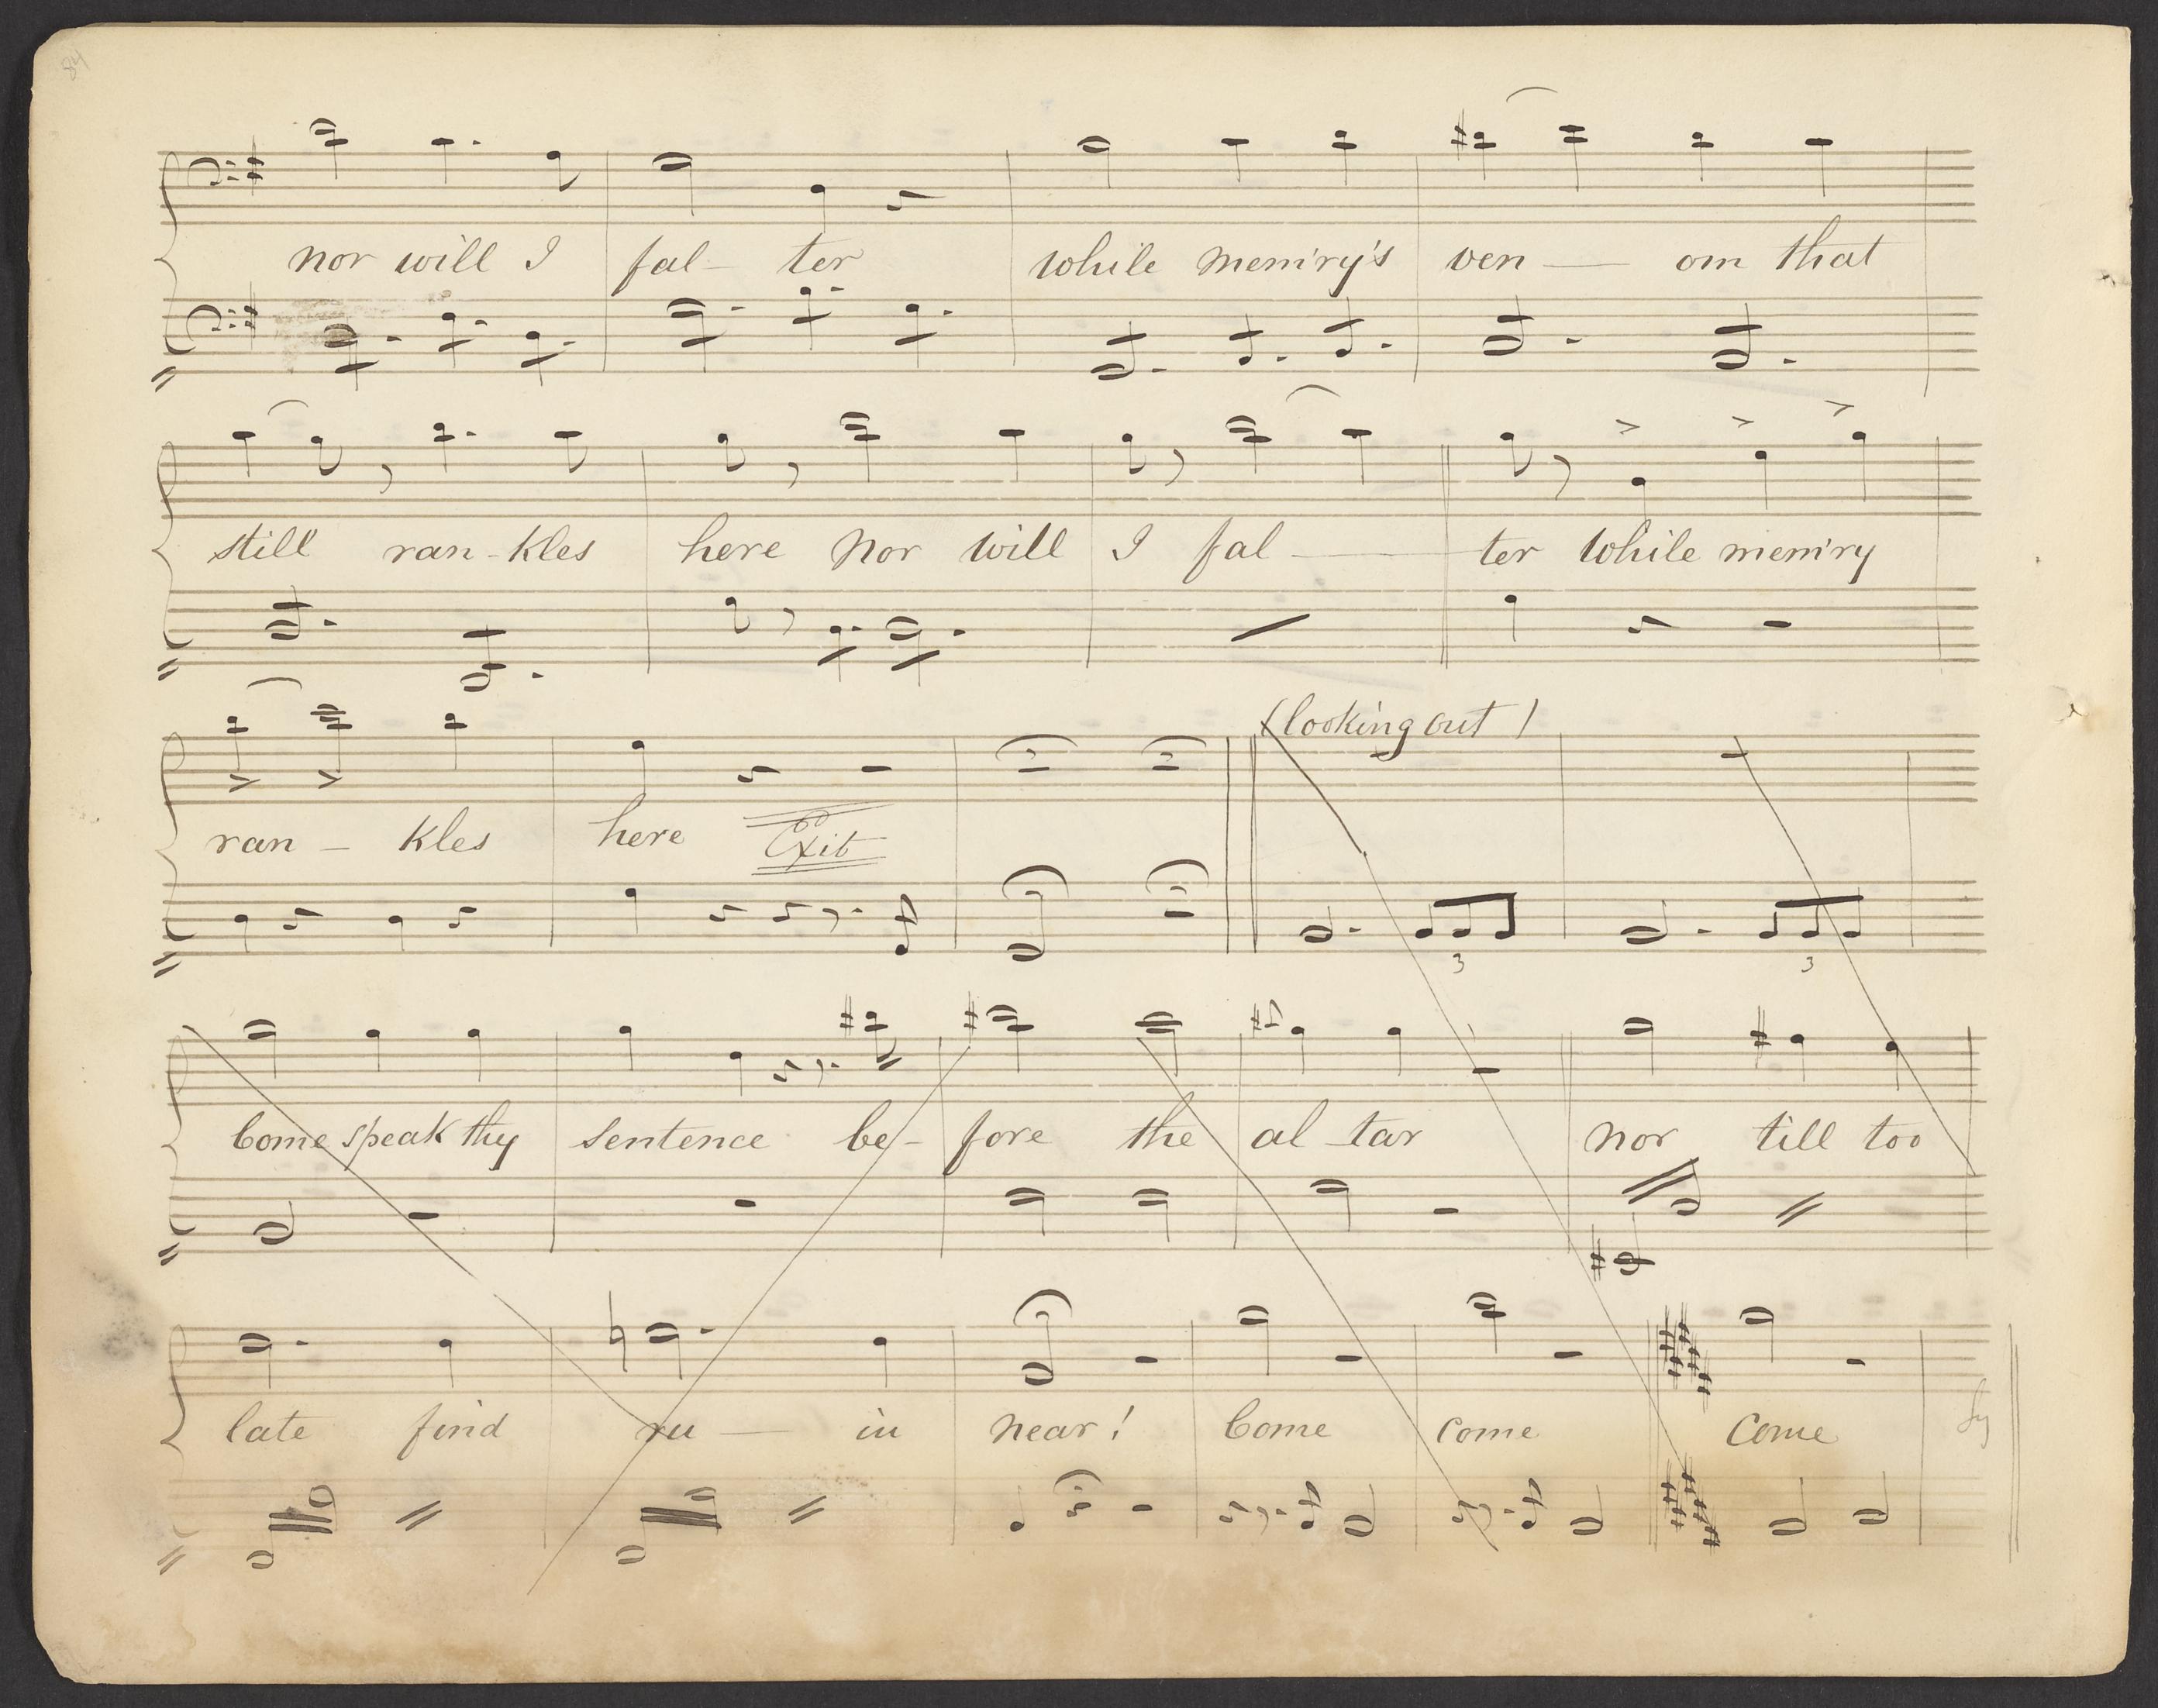 84
nor will I fal- ter while mem'ry's ven — om that
still ran-kles here nor will I fal — ter while mem'ry
(looking out)
ran - kles here Exit
3 3
Come speak thy sentence be- fore the al-tar nor till too
late find ru — in near! Come come come